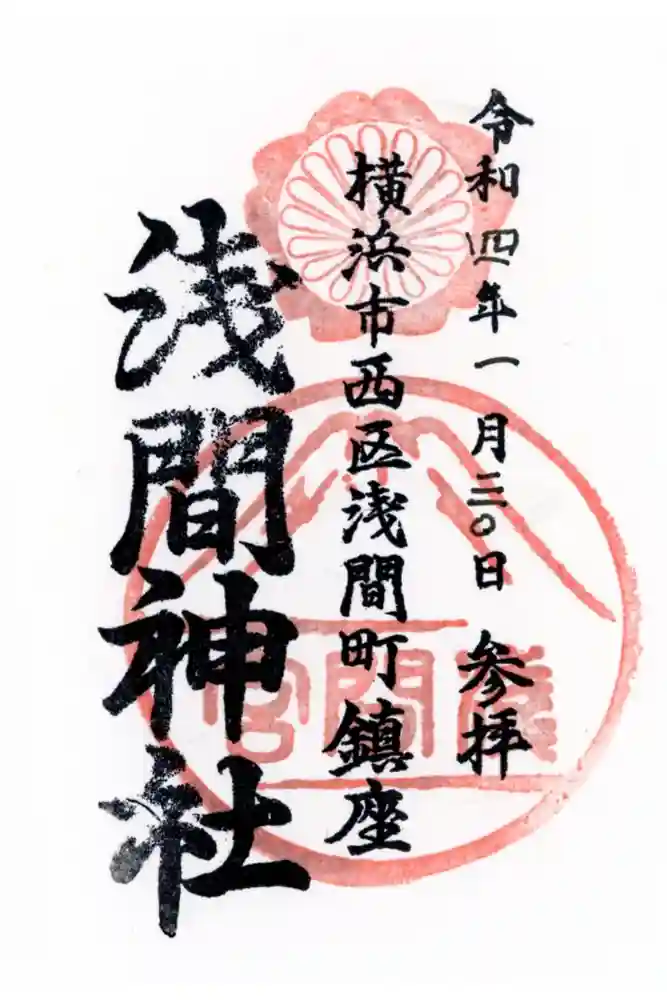 令和四年一月三〇日 参拝
横浜市西区浅間町鎮座
浅間神社
淺間宮